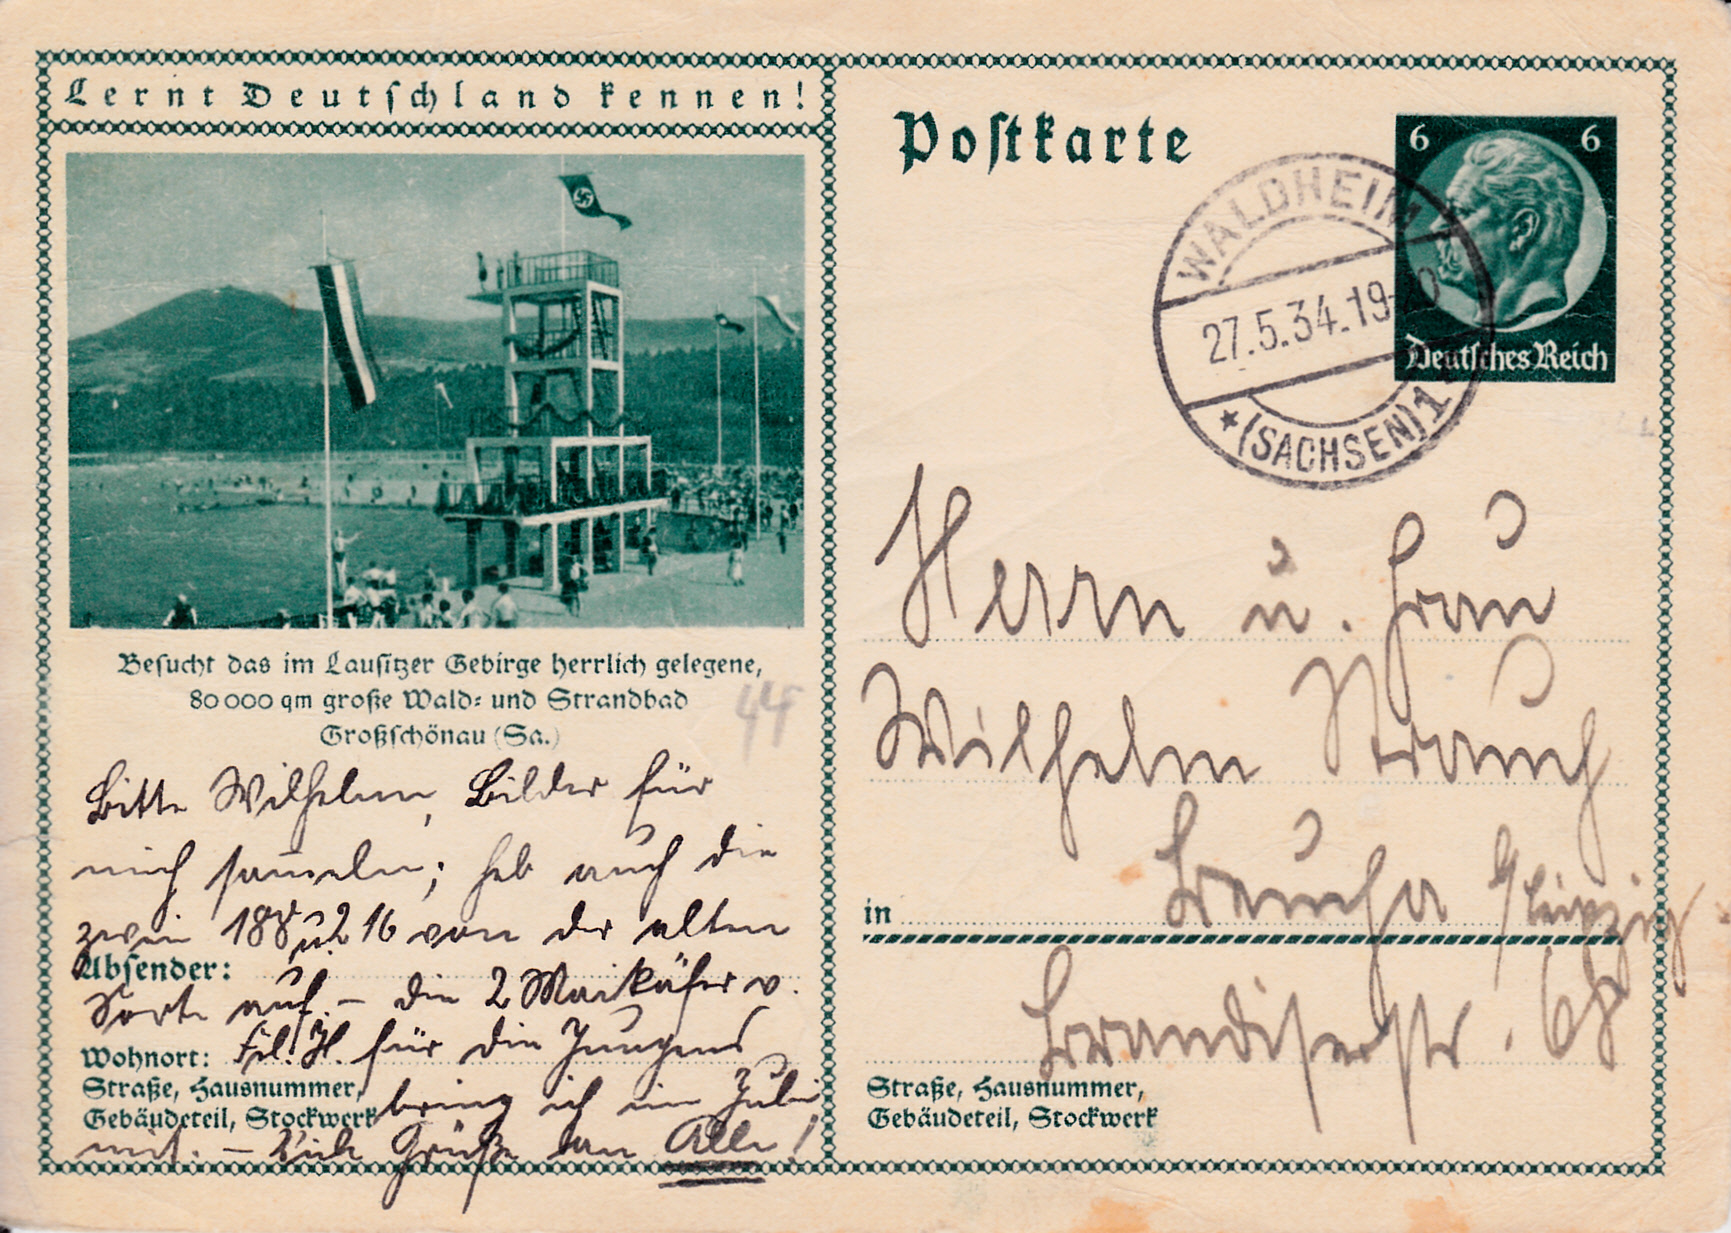 Lernt Deutschland kennen!
Besucht das im Lausitzer Gebirge herrlich gelegene,
80000 qm große Wald- und Strandbad
Großschönau (Sa.)
Bitte Wilhelm, Bilder für
mich sammeln; heb auch die
zwei 188 u. 216 von der alten
Absender:
Sorte auf. – die 2 Maikäfer v.
Wohnort:
für die Jungens
Straße, Hausnummer,
bring ich im Juli
Gebäudeteil, Stockwerk
mit. – Viele Grüße an Alle!
44
Postkarte
6 6
Deutsches Reich
WALDHEIM
27.5.34.19-20
* (SACHSEN) 1
Herrn u. Frau
Wilhelm Strauch
in Beucha b/Leipzig
Brandiserstr. 68
Straße, Hausnummer,
Gebäudeteil, Stockwerk